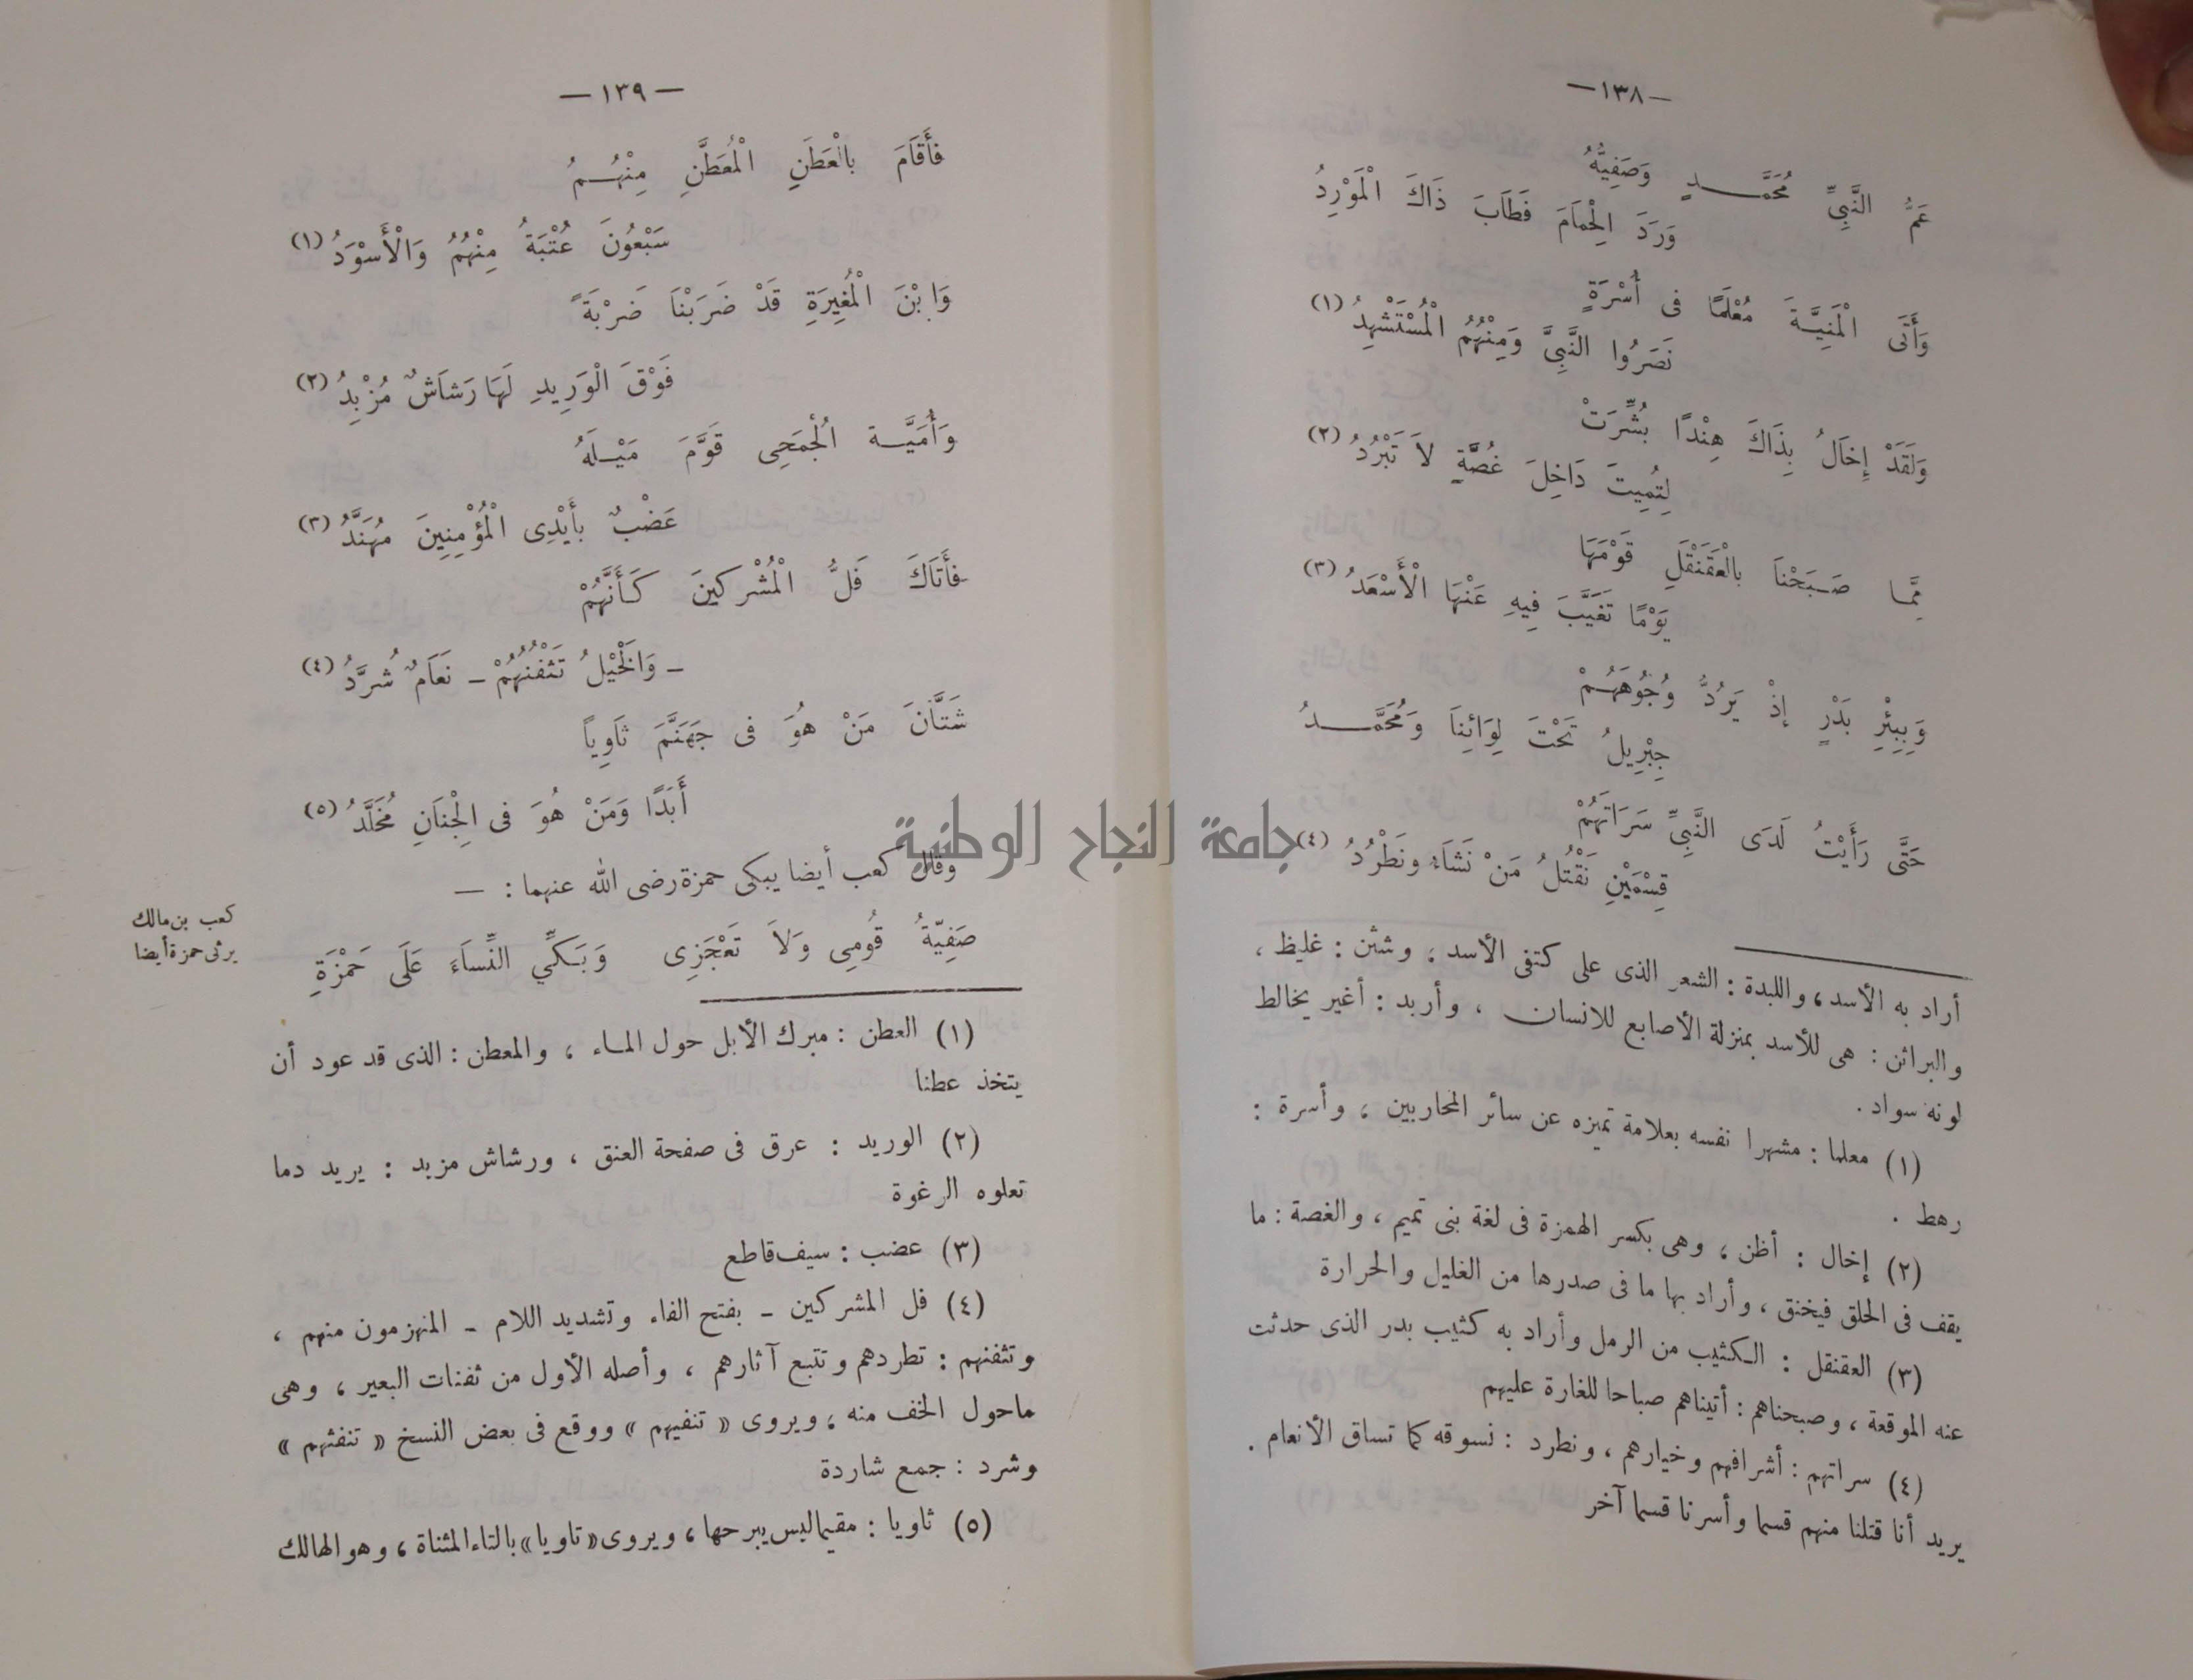 — ١٣٨ —
عَمُّ النَّبِيِّ مُحَمَّدٍ وَصَفِيُّهُ
وَرَدَ الْحِمَامَ فَطَابَ ذَاكَ الْمَوْرِدُ
وَأَتَى الْمَنِيَّةَ مُعْلَمًا فى أُسْرَةٍ
نَصَرُوا النَّبِيَّ وَمِنْهُمُ الْمُسْتَشْهِدُ (١)
وَلَقَدْ إِخَالُ بِذَاكَ هِنْدًا بُشِّرَتْ
لِتُمِيتَ دَاخِلَ غُصَّةٍ لاَ تَبْرُدُ (٢)
مِمَّا صَبَحْنَا بالْعَقَنْقَلِ قَوْمَهَا
يَوْمًا تَغَيَّبَ فِيهِ عَنْهَا الْأَسْعَدُ (٣)
وَبِبِئْرِ بَدْرٍ إِذْ يَرُدُّ وُجُوهَهُمْ
جِبْرِيلُ تَحْتَ لِوَائِنَا وَمُحَمَّدُ
حَتَّى رَأَيْتُ لَدَى النَّبِيِّ سَرَاتَهُمْ
قِسْمَيْنِ نَقْتُلُ مَنْ نَشَاءُ ونَطْرُدُ (٤)
أراد به الأسد، واللبدة : الشعر الذى على كتفى الأسد ، وشثن : غليظ ،
والبراثن : هى للأسد بمنزلة الأصابع للانسان ، وأربد : أغير يخالط
لونه سواد .
(١) معلما : مشهرا نفسه بعلامة تميزه عن سائر المحاربين ، وأسرة :
رهط .
(٢) إخال : أظن ، وهى بكسر الهمزة فى لغة بنى تميم ، والغصة : ما
يقف فى الحلق فيخنق ، وأراد بها ما فى صدرها من الغليل والحرارة
(٣) العقنقل : الكثيب من الرمل وأراد به كثيب بدر الذى حدثت
عنه الموقعة ، وصبحناهم : أتيناهم صباحا للغارة عليهم
(٤) سراتهم : أشرافهم وخيارهم ، ونطرد : نسوقه كما تساق الأنعام .
يريد أنا قتلنا منهم قسما وأسرنا قسما آخر
— ١٣٩ —
فأَقَامَ بالْعَطَنِ الْمُعَطَّنِ مِنْهُمُ
سَبْعُونَ عُتْبَةُ مِنْهُمُ وَالْأَسْوَدُ (١)
وَابْنَ الْمُغِيرَةِ قَدْ ضَرَبْنَا ضَرْبَةً
فَوْقَ الْوَرِيدِ لَهَا رَشَاشٌ مُزْبِدُ (٢)
وَأُمَيَّة الْجُمَحِى قَوَّمَ مَيْلَهُ
عَضْبٌ بأَيْدِى الْمُؤْمِنِينَ مُهَنَّدُ (٣)
فأَتَاكَ فَلُّ الْمُشْرِكِينَ كَأَنَّهُمْ
– وَالْخَيْلُ تَثْفُنُهُمْ – نَعَامٌ شُرَّدُ (٤)
شَتَّانَ مَنْ هُوَ فى جَهَنَّمَ ثَاوِياً
أَبَدًا وَمَنْ هُوَ فى الْجِنَانِ مُخَلَّدُ (٥)
جامعة النجاح الوطنية
وقال كعب أيضا يبكى حمزة رضى الله عنهما : —
كعب بن مالك
يرثى حمزة أيضا
صَفِيّةُ قُومِى وَلاَ تَعْجَزِى وَبَكِّي النِّسَاءَ عَلَى حَمْزَةِ
(١) العطن : مبرك الأبل حول الماء ، والمعطن : الذى قد عود أن
يتخذ عطنا
(٢) الوريد : عرق فى صفحة العنق ، ورشاش مزبد : يريد دما
تعلوه الرغوة
(٣) عضب : سيف قاطع
(٤) فل المشركين – بفتح الفاء وتشديد اللام – المنهزمون منهم ،
وتثفنهم : تطردهم وتتبع آثارهم ، وأصله الأول من ثفنات البعير ، وهى
ماحول الخف منه ، ويروى « تنفيهم » ووقع فى بعض النسخ « تنفثهم »
وشرد : جمع شاردة
(٥) ثاويا : مقيما ليس يبرحها ، ويروى «تاويا» بالتاء المثناة ، وهو الهالك